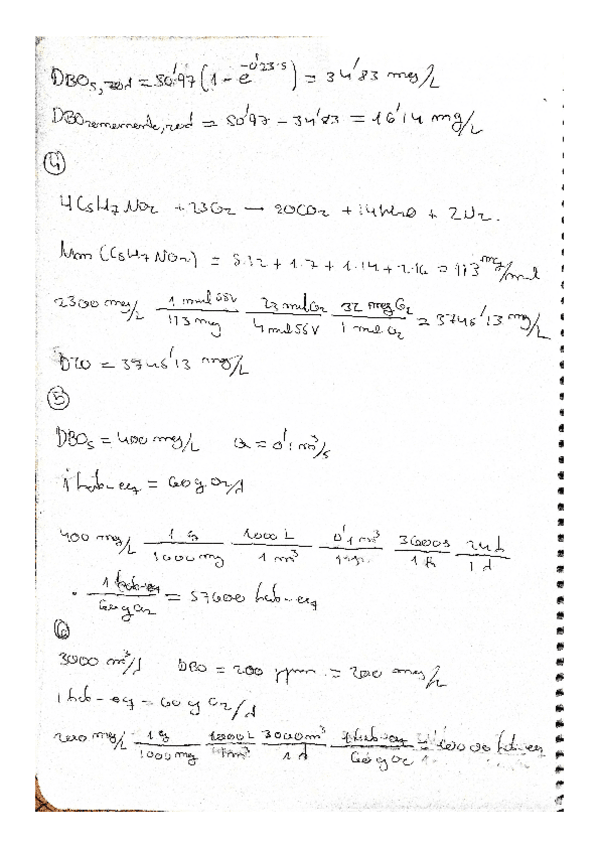 DBO5,red = 50'97 (1 - e^-0'23·5) = 34'83 mg/L
DBOremanente,red = 50'97 - 34'83 = 16'14 mg/L
④
4C5H7NO2 + 23O2 — 20CO2 + 14H2O + 2N2.
Mm (C5H7NO2) = 5·12 + 1·7 + 1·14 + 2·16 = 113 mg/mmol
2300 mg/L · 1 mmol SSV / 113 mg · 23 mmol O2 / 4 mmol SSV · 32 mg O2 / 1 mmol O2 = 3746'13 mg/L
DQO = 3746'13 mg/L
⑤
DBO5 = 400 mg/L Q = 0'1 m³/s
1 hab-eq = 60 g O2/d
400 mg/L · 1 g / 1000 mg · 1000 L / 1 m³ · 0'1 m³ / 1 s · 3600 s / 1 h · 24 h / 1 d
· 1 hab-eq / 60 g O2 = 57600 hab-eq
⑥
3000 m³/d DBO = 200 ppm = 200 mg/L
1 hab-eq = 60 g O2/d
200 mg/L · 1 g / 1000 mg · 1000 L / 1 m³ · 3000 m³ / 1 d · 1 hab-eq / 60 g O2 = 10000 hab-eq